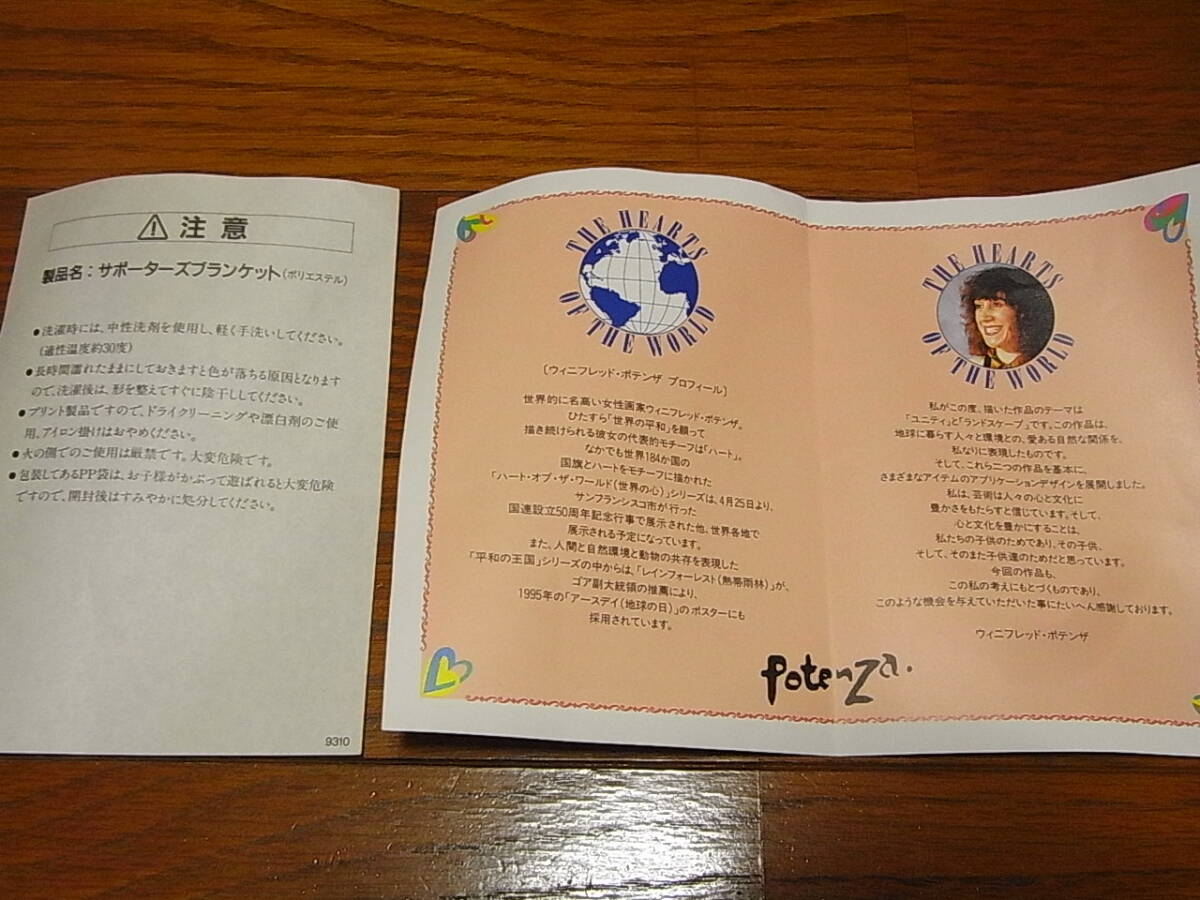 ⚠ 注意
製品名:サポーターズブランケット(ポリエステル)
●洗濯時には、中性洗剤を使用し、軽く手洗いしてください。
(適性温度約30度)
●長時間濡れたままにしておきますと色が落ちる原因となります
ので、洗濯後は、形を整えてすぐに陰干ししてください。
●プリント製品ですので、ドライクリーニングや漂白剤のご使
用、アイロン掛けはおやめください。
●火の側でのご使用は厳禁です。大変危険です。
●包装してあるPP袋は、お子様がかぶって遊ばれると大変危険
ですので、開封後はすみやかに処分してください。
9310
THE HEARTS
OF THE WORLD
〔ウィニフレッド・ポテンザ プロフィール〕
世界的に名高い女性画家ウィニフレッド・ポテンザ。
ひたすら「世界の平和」を願って
描き続けられる彼女の代表的モチーフは「ハート」。
なかでも世界184か国の
国旗とハートをモチーフに描かれた
「ハート・オブ・ザ・ワールド(世界の心)」シリーズは、4月25日より、
サンフランシスコ市が行った
国連設立50周年記念行事で展示された他、世界各地で
展示される予定になっています。
また、人間と自然環境と動物の共存を表現した
「平和の王国」シリーズの中からは、「レインフォーレスト(熱帯雨林)」が、
ゴア副大統領の推薦により、
1995年の「アースデイ(地球の日)」のポスターにも
採用されています。
THE HEARTS
OF THE WORLD
私がこの度、描いた作品のテーマは
「ユニティ」と「ランドスケープ」です。この作品は、
地球に暮らす人々と環境との、愛ある自然な関係を、
私なりに表現したものです。
そして、これら二つの作品を基本に、
さまざまなアイテムのアプリケーションデザインを展開しました。
私は、芸術は人々の心と文化に
豊かさをもたらすと信じています。そして、
心と文化を豊かにすることは、
私たちの子供のためであり、その子供、
そして、そのまた子供達のためだと思っています。
今回の作品も、
この私の考えにもとづくものであり、
このような機会を与えていただいた事にたいへん感謝しております。
ウィニフレッド・ポテンザ
Potenza.